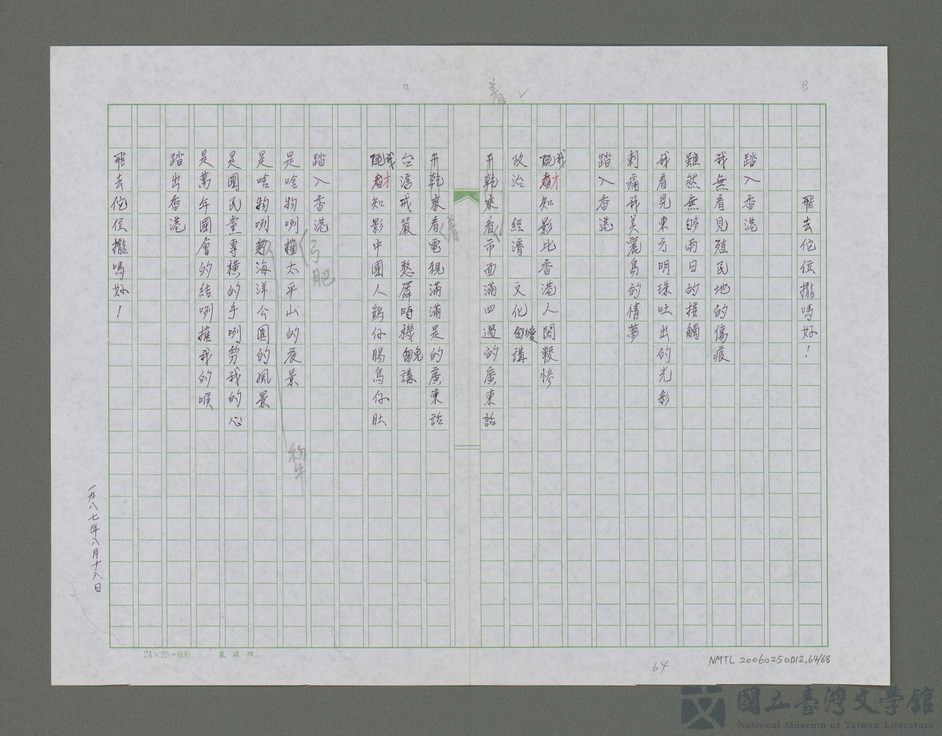 飛去佗位攏嗎好！
踏入香港
我無看見殖民地的傷痕
雖然無夠兩日的接觸
我看見東方明珠吐出的光彩
刺痛我美麗島的情夢
踏入香港
我才知影比香港人閣較慘
政治　經濟　文化 講
開幹來看市面滿四過的廣東話
開幹來看電視滿滿是的廣東話
台灣戒嚴　愁 時機 免講
我才知影中國人鷄仔腸鳥仔肚
踏入香港
是啥物咧擋太平山的夜景
是啥物咧 海洋公園的風景
是國民黨專橫的手咧剪我的心
是萬年國會的結咧搉我的喉
踏出香港
飛去佗位攏嗎好！
一九八七年八月十八日
着
着
弓
肥
24×25=600
64
NMTL 20060250012,64/68
國立臺灣文學館
National Museum of Taiwan Literature